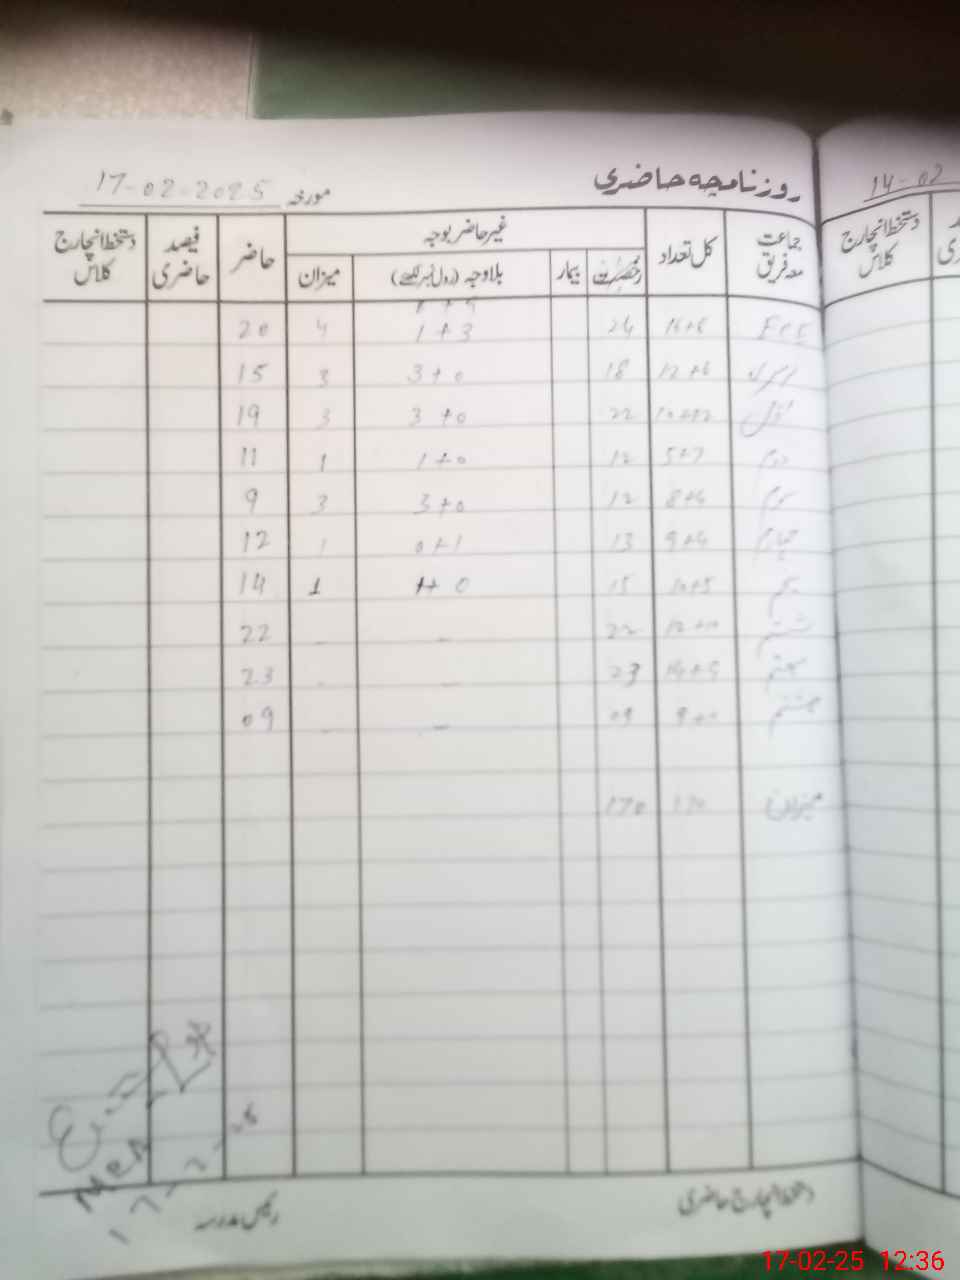 روزنامچہ حاضری
مورخہ 17-02-2025
جماعت معہ فریق کل تعداد غیر حاضر بوجہ حاضر فیصد حاضری دستخط انچارج کلاس
بیمار بلاوجہ (رول نمبر لکھئے) میزان
ECE 16+8 24 1+3 4 20
12+6 18 3+0 3 15
اول 10+12 22 3+0 3 19
دوم 5+7 12 1+0 1 11
سوم 8+4 12 3+0 3 9
چہارم 9+4 13 0+1 1 12
پنجم 10+5 15 1+0 1 14
ششم 22 - - 22
ہفتم 23 - - 23
ہشتم 09 - - 09
میزان 170 170
MEA
دستخط انچارج حاضری
رئیس مدرسہ
14-02
دستخط انچارج کلاس
17-02-25 12:36